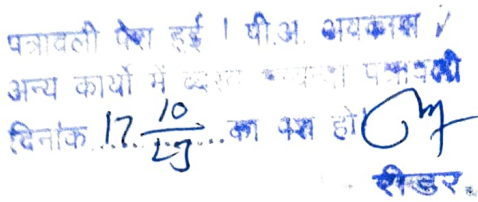 पत्रावली पेश हुई । पी.अ. अवकाश /
अन्य कार्यो में व्यस्त पत्रावली
दिनांक 17 10/23 को पेश हो
रीडर